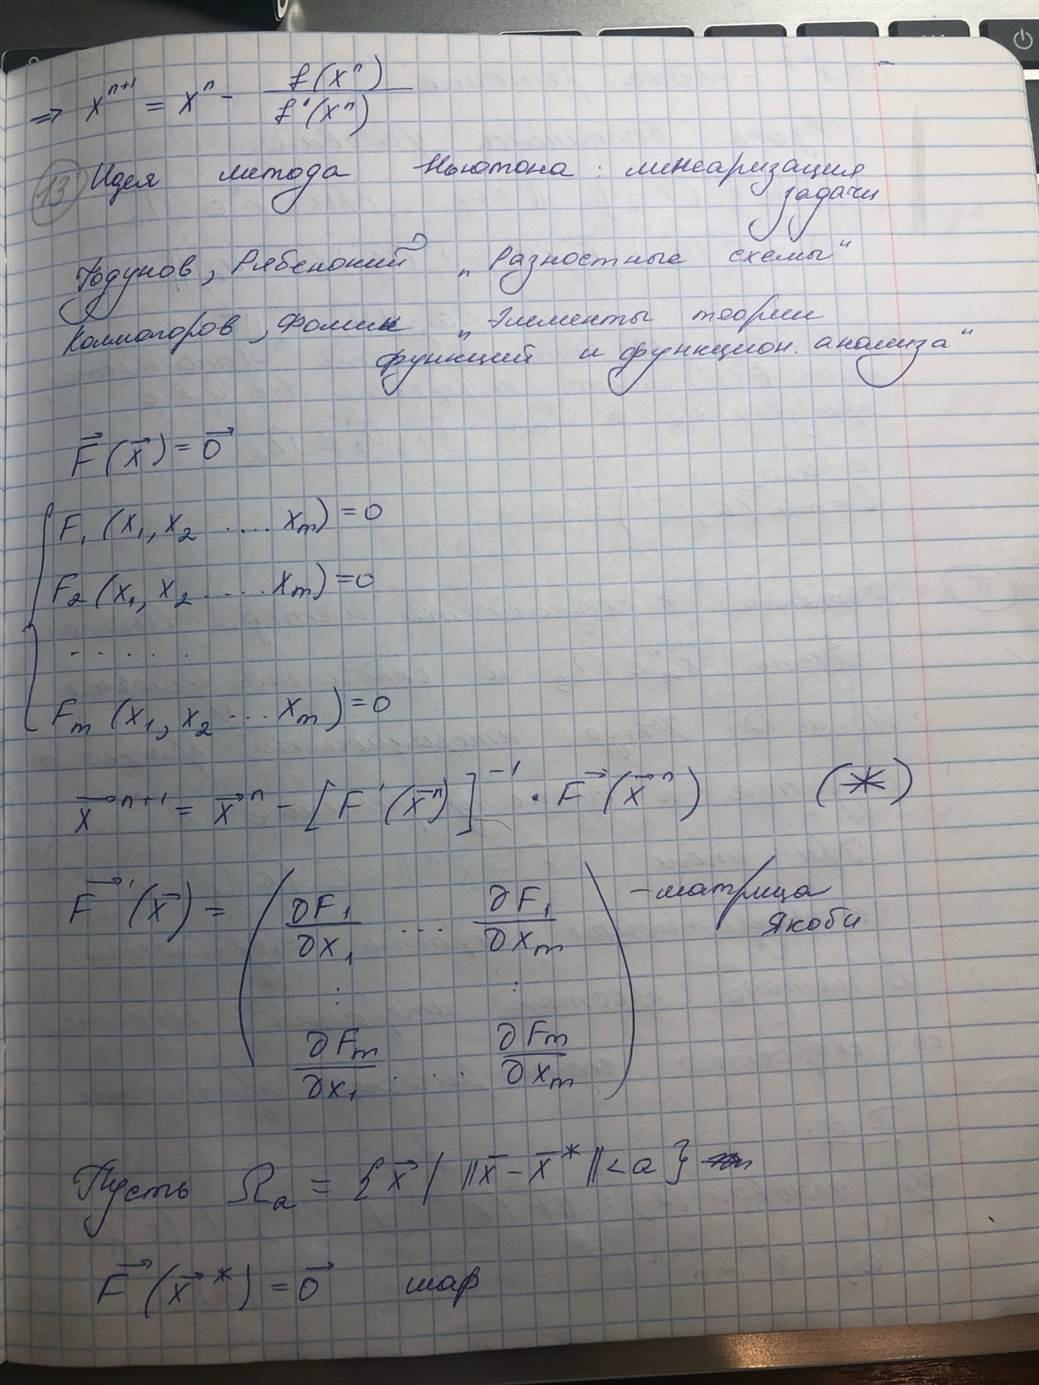 ⇒ xⁿ⁺¹ = xⁿ - f(xⁿ) / f'(xⁿ)
13 Идея метода Ньютона: линеаризация
задачи
Годунов, Рябенький „Разностные схемы“
Колмогоров, Фомин „Элементы теории
функций и функцион. анализа“
F⃗(x⃗) = 0⃗
F₁(x₁, x₂ .... xₘ) = 0
F₂(x₁, x₂ ..... xₘ) = 0
.....
Fₘ(x₁, x₂ ... xₘ) = 0
x⃗ⁿ⁺¹ = x⃗ⁿ - [F'(x⃗ⁿ)]⁻¹ · F⃗(x⃗ⁿ) (*)
F⃗'(x⃗) = ( ∂F₁/∂x₁ ... ∂F₁/∂xₘ - матрица
Якоби
: :
∂Fₘ/∂x₁ .... ∂Fₘ/∂xₘ )
Пусть Ωₐ = {x⃗ | ||x̄ - x̄*|| < a}
F⃗(x⃗*) = 0⃗ шар